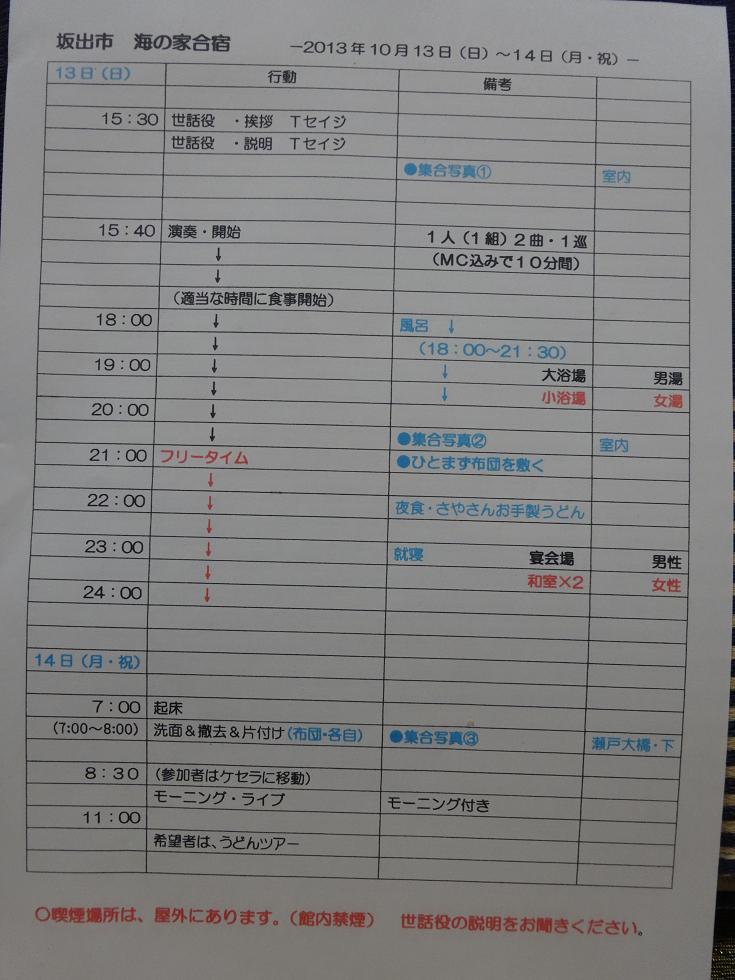 坂出市　海の家合宿　－2013年10月13日（日）～14日（月・祝）－
13日（日）　行動　備考
15：30　世話役　・挨拶　Tセイジ
世話役　・説明　Tセイジ
●集合写真①　室内
15：40　演奏・開始　1人（1組）2曲・1巡
↓　（MC込みで10分間）
↓
（適当な時間に食事開始）
18：00　↓　風呂　↓
↓　（18：00～21：30）
19：00　↓　↓　大浴場　男湯
↓　↓　小浴場　女湯
20：00　↓
↓　●集合写真②　室内
21：00　フリータイム　●ひとまず布団を敷く
↓
22：00　↓　夜食・さやさんお手製うどん
↓
23：00　↓　就寝　宴会場　男性
↓　和室×2　女性
24：00　↓
14日（月・祝）
7：00　起床
（7:00～8:00）　洗面＆撤去＆片付け（布団・各自）　●集合写真③　瀬戸大橋・下
8：30　（参加者はケセラに移動）
モーニング・ライブ　モーニング付き
11：00
希望者は、うどんツアー
○喫煙場所は、屋外にあります。（館内禁煙）　世話役の説明をお聞きください。